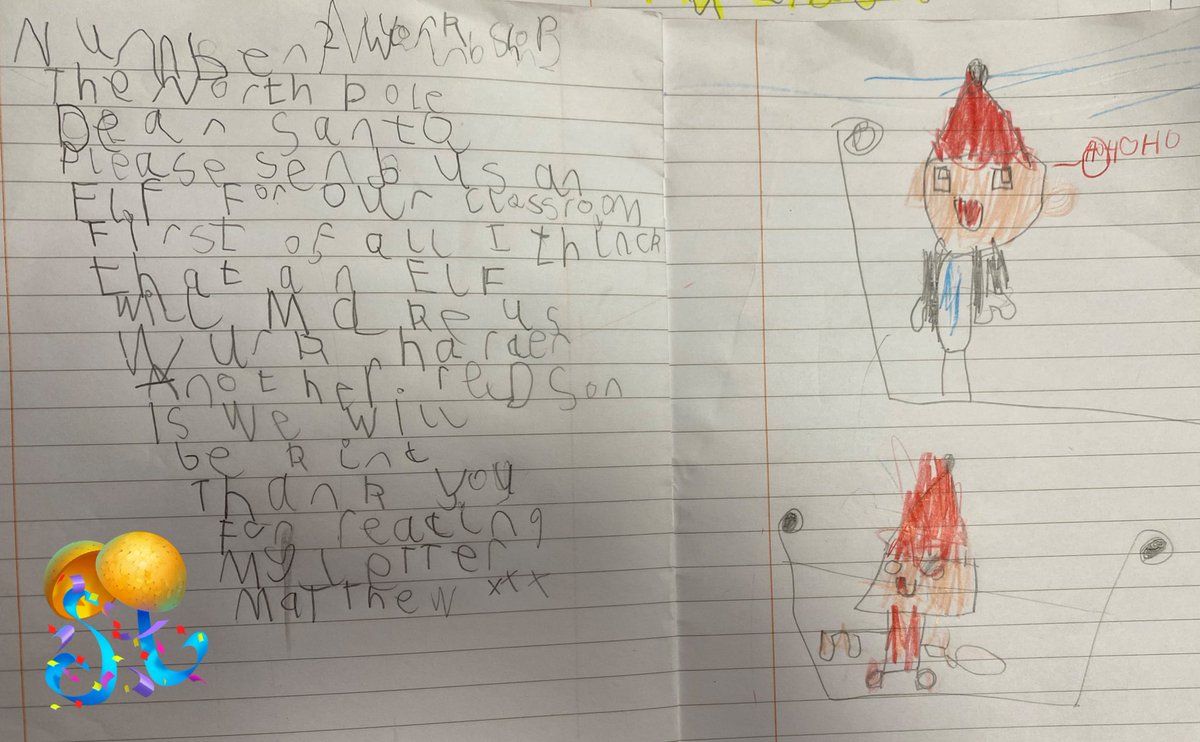 The North pole
Dear santa
Please send us an
Elf For our classroom
First of all I thinck
that an ELF
will Make us
Wurk harder
Another. reason
is we will
be kint
Thank you
For reating
My Letter
Matthew xxx
HOHOHO